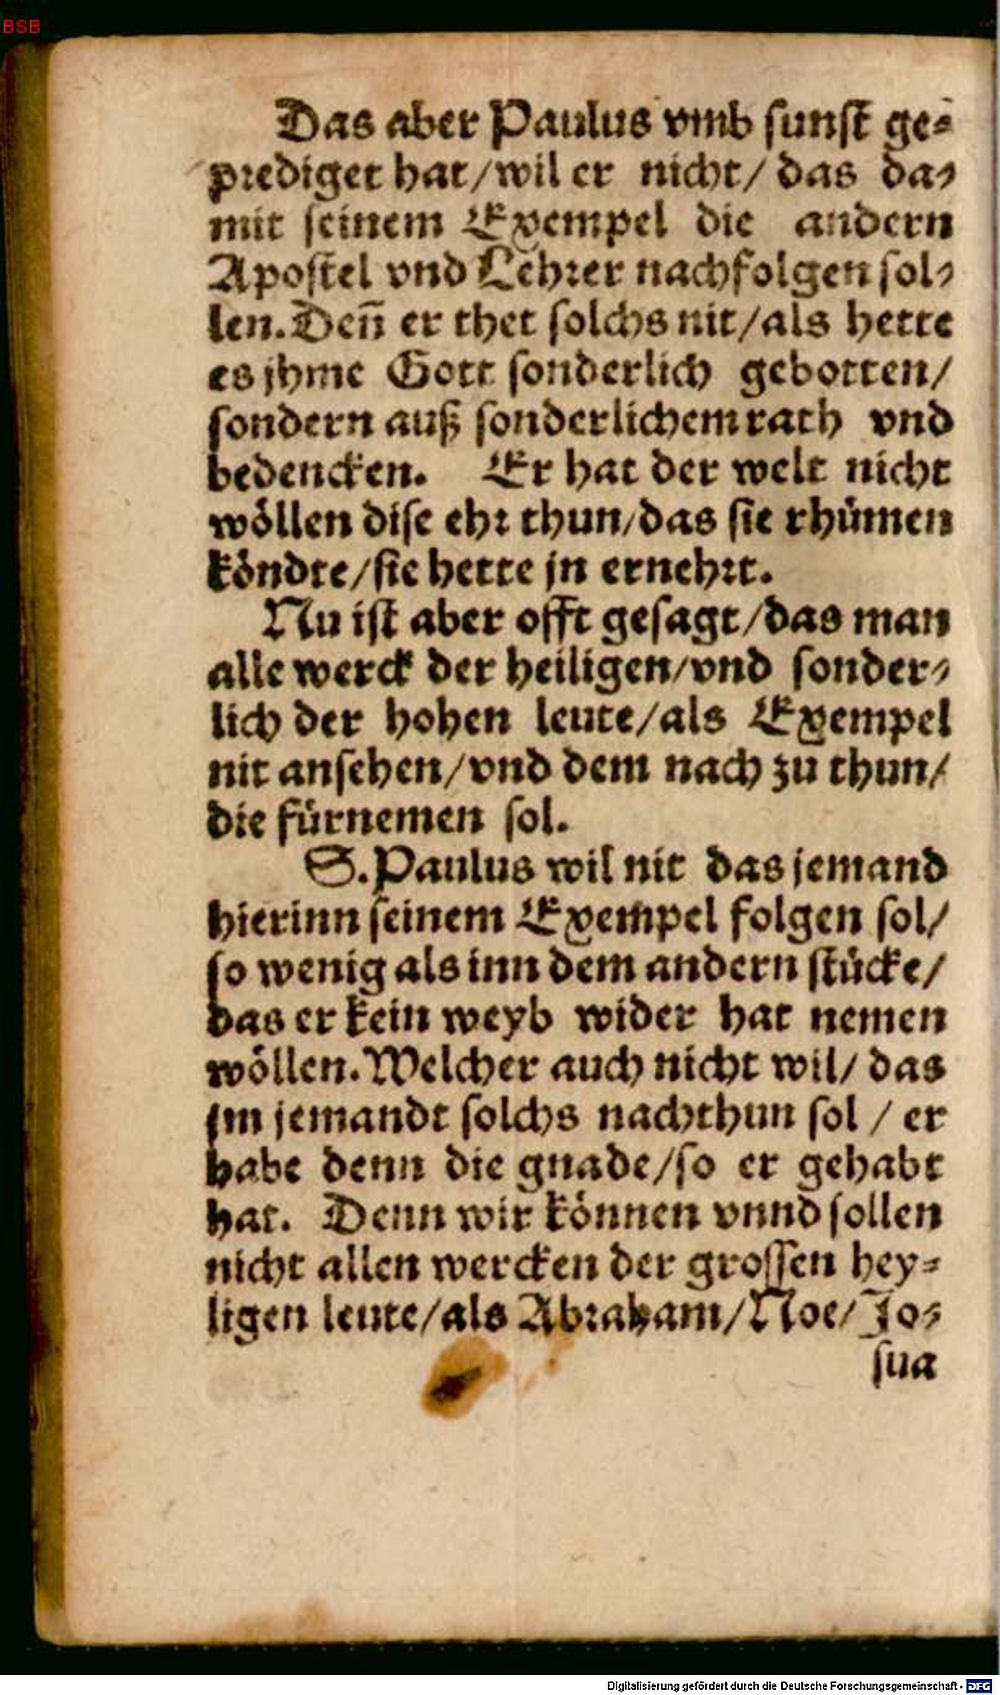 BSB
Das aber Paulus vmb sunst ge-
prediget hat/wil er nicht/ das da-
mit seinem Exempel die andern
Apostel vnd Lehrer nachfolgen sol-
len. Deñ er thet solchs nit/als hette
es jhme Gott sonderlich gebotten/
sondern auß sonderlichem rath vnd
bedencken. Er hat der welt nicht
wöllen dise ehr thun/das sie rhümen
köndte/sie hette jn ernehrt.
Nu ist aber offt gesagt/das man
alle werck der heiligen/vnd sonder-
lich der hohen leute/als Exempel
nit ansehen/vnd dem nach zu thun/
die fürnemen sol.
S. Paulus wil nit das jemand
hierinn seinem Exempel folgen sol/
so wenig als inn dem andern stücke/
das er kein weyb wider hat nemen
wöllen. Welcher auch nicht wil/ das
jm jemandt solchs nachthun sol / er
habe denn die gnade/so er gehabt
hat. Denn wir können vnnd sollen
nicht allen wercken der grossen hey-
ligen leute/als Abraham/Noe/Jo-
sua
Digitalisierung gefördert durch die Deutsche Forschungsgemeinschaft - DFG